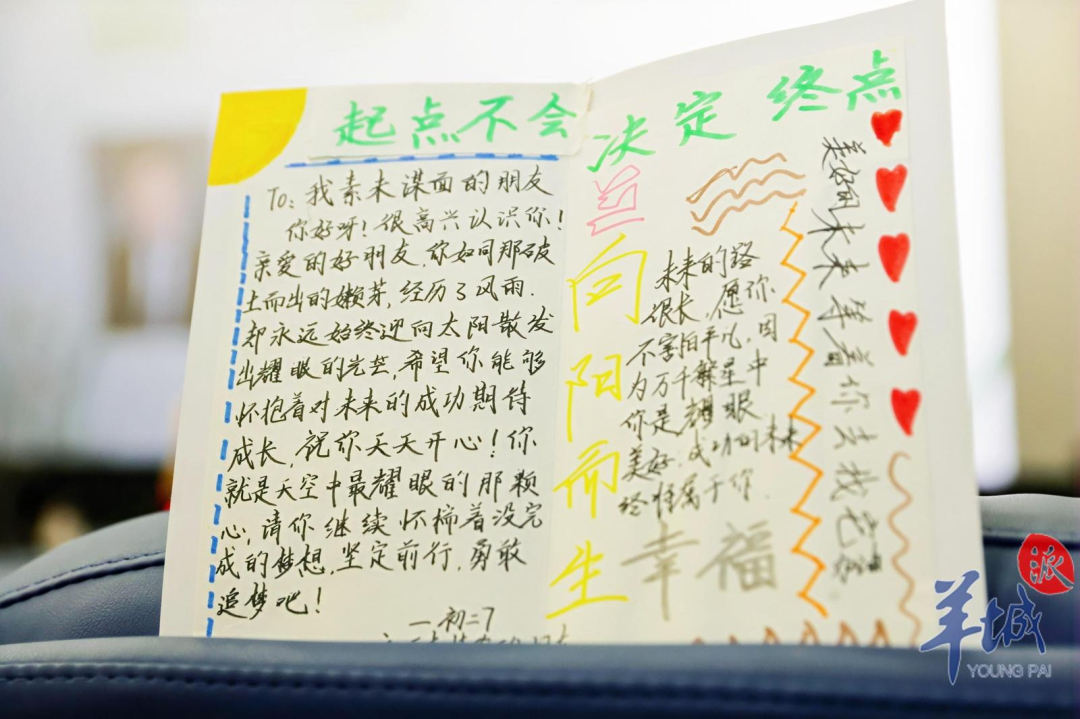 起点不会决定终点
To：我素未谋面的朋友
你好呀！很高兴认识你！
亲爱的好朋友，你如同那破
土而出的嫩芽，经历了风雨，
却永远始终迎向太阳散发
出耀眼的光芒，希望你能够
怀抱着对未来的成功期待
成长，祝你天天开心！你
就是天空中最耀眼的那颗
心，请你继续怀揣着没完
成的梦想，坚定前行，勇敢
追梦吧！
一初二7
向阳而生
未来的路
很长，愿你
不害怕平凡，因
为万千繁星中
你是耀眼
美好，成功的未来
终将属于你．
幸福
美好的未来等着你去找它
羊城派
YOUNG PAI